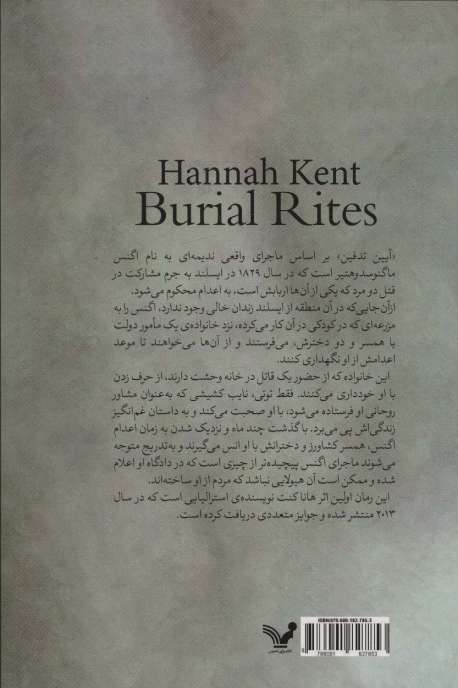 Hannah Kent
Burial Rites
«آیین تدفین» بر اساس ماجرای واقعی ندیمه‌ای به نام اگنس
ماگنوسدوهتیر است که در سال ۱۸۲۹ در ایسلند به جرم مشارکت در
قتل دو مرد که یکی از آن‌ها اربابش است، به اعدام محکوم می‌شود.
ازآن‌جایی‌که در آن منطقه از ایسلند زندان خالی وجود ندارد، اگنس را به
مزرعه‌ای که در کودکی در آن کار می‌کرده، نزد خانواده‌ی یک مأمور دولت
با همسر و دو دخترش، می‌فرستند و از آن‌ها می‌خواهند تا موعد
اعدامش از او نگهداری کنند.
این خانواده که از حضور یک قاتل در خانه وحشت دارند، از حرف زدن
با او خودداری می‌کنند. فقط توتی، نایب کشیشی که به‌عنوان مشاور
روحانی او فرستاده می‌شود، با او صحبت می‌کند و به داستان غم‌انگیز
زندگی‌اش پی می‌برد. با گذشت چند ماه و نزدیک شدن به زمان اعدام
اگنس، همسر کشاورز و دخترانش با او انس می‌گیرند و به‌تدریج متوجه
می‌شوند ماجرای اگنس پیچیده‌تر از چیزی است که در دادگاه او اعلام
شده و ممکن است آن هیولایی نباشد که مردم از او ساخته‌اند.
این رمان اولین اثر هانا کنت نویسنده‌ی استرالیایی است که در سال
۲۰۱۳ منتشر شده و جوایز متعددی دریافت کرده است.